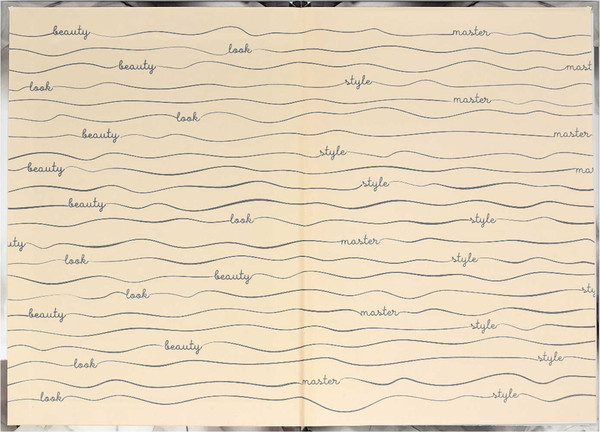 beauty master
look
beauty mast
look style
master
look
beauty master
style
beauty ma
style
beauty
look style
uty master
look style
beauty
look sty
beauty master
style
beauty
look style
master
look style